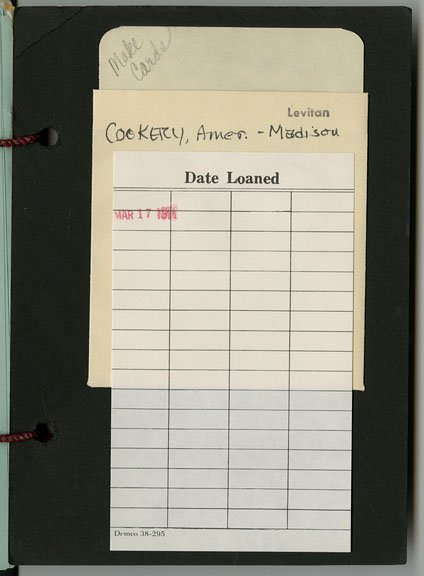 Make
Cards
Levitan
COOKERY, Amer. - Madison
Date Loaned
MAR 17
Demco 38-295